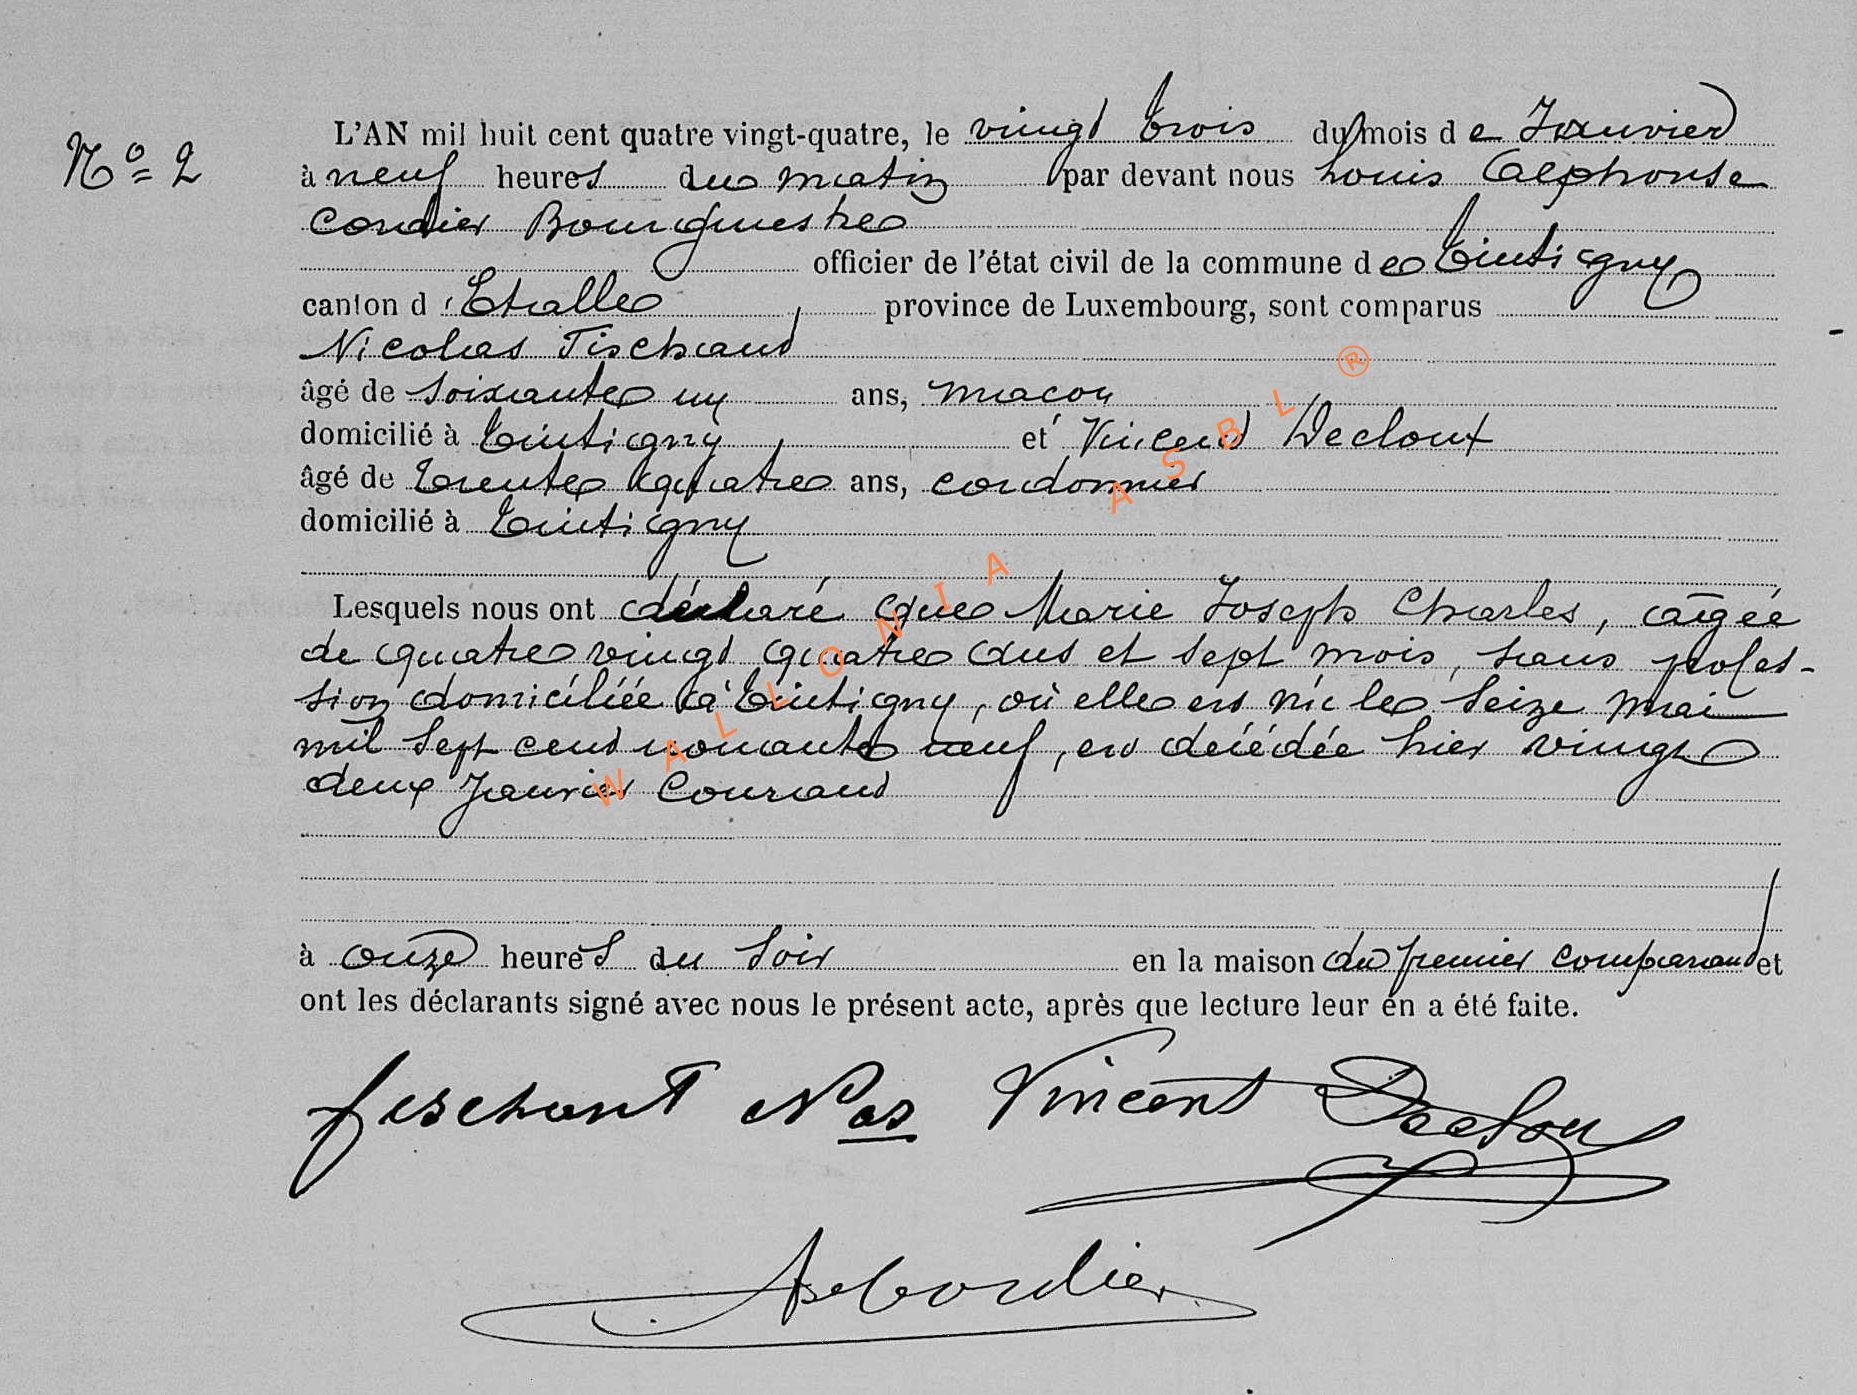 N° 2
L'AN mil huit cent quatre vingt-quatre, le vingt trois du mois de Janvier
à neuf heures du matin par devant nous Louis Alphonse
Cordier Bourgmestre
officier de l'état civil de la commune de Tintigny
canton d'Etalle, province de Luxembourg, sont comparus
Nicolas Fischant
âgé de soixante un ans, maçon
domicilié à Tintigny, et Vincent Decloux
âgé de trente quatre ans, cordonnier
domicilié à Tintigny
Lesquels nous ont déclaré que Marie Joseph Charles, âgée
de quatre vingt quatre ans et sept mois, sans profes-
sion domiciliée à Tintigny, où elle est née le seize mai
mil sept cent nonante neuf, est décédée hier vingt
deux Janvier courant
à onze heures du soir en la maison du premier comparant et
ont les déclarants signé avec nous le présent acte, après que lecture leur en a été faite.
fischant Nas Vincent Decloux
Cordier
WALLONIA ASBL ®